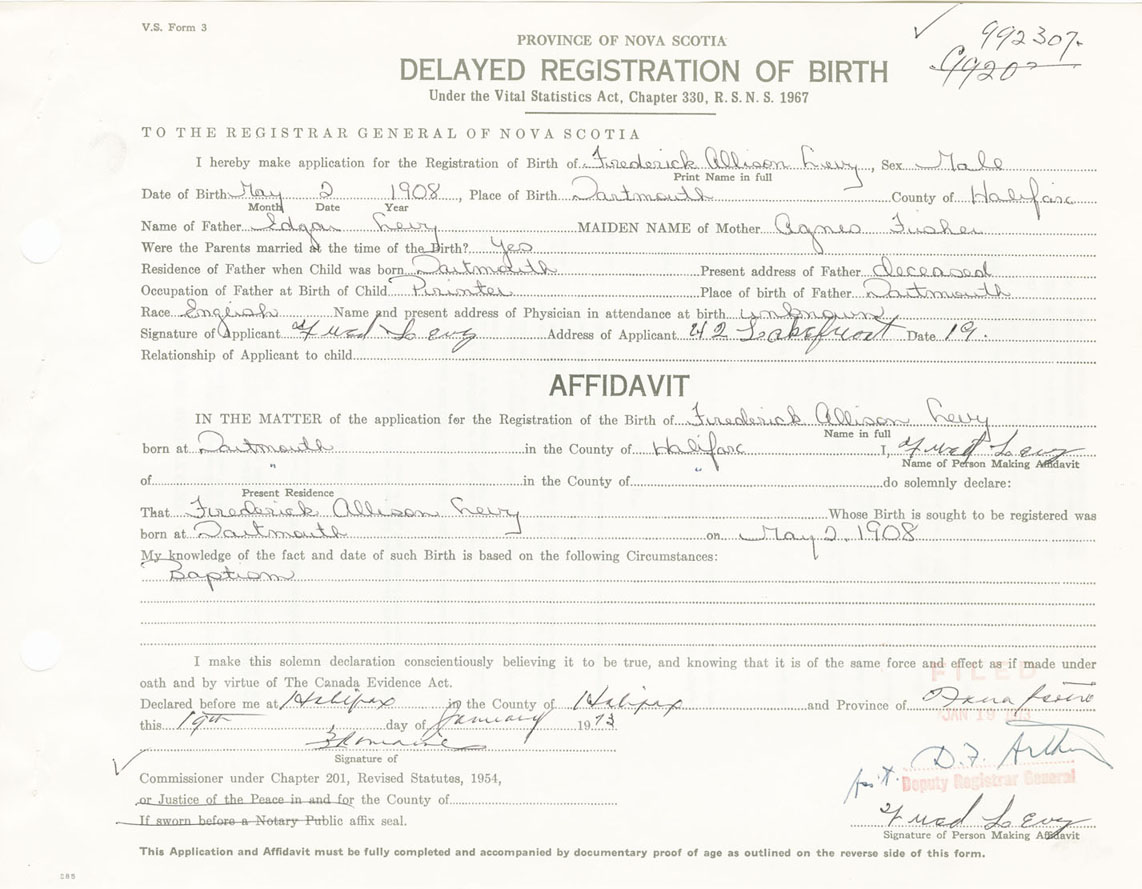 V.S. Form 3
992307.
9920
PROVINCE OF NOVA SCOTIA
DELAYED REGISTRATION OF BIRTH
Under the Vital Statistics Act, Chapter 330, R. S. N. S. 1967
TO THE REGISTRAR GENERAL OF NOVA SCOTIA
I hereby make application for the Registration of Birth of Frederick Allison Levy, Sex Male
Print Name in full
Date of Birth May 2 1908, Place of Birth Dartmouth County of Halifax
Month Date Year
Name of Father Edgar Levy MAIDEN NAME of Mother Agnes Fisher
Were the Parents married at the time of the Birth? Yes
Residence of Father when Child was born Dartmouth Present address of Father deceased
Occupation of Father at Birth of Child Printer Place of birth of Father Dartmouth
Race English Name and present address of Physician in attendance at birth unknown
Signature of Applicant Fred Levy Address of Applicant 42 Lakefront Date 19.
Relationship of Applicant to child
AFFIDAVIT
IN THE MATTER of the application for the Registration of the Birth of Frederick Allison Levy
Name in full
born at Dartmouth in the County of Halifax I, Fred Levy
Name of Person Making Affidavit
of " in the County of " do solemnly declare:
Present Residence
That Frederick Allison Levy Whose Birth is sought to be registered was
born at Dartmouth on May 2, 1908
My knowledge of the fact and date of such Birth is based on the following Circumstances:
Baptism
I make this solemn declaration conscientiously believing it to be true, and knowing that it is of the same force and effect as if made under
oath and by virtue of The Canada Evidence Act.
FILED
Declared before me at Halifax in the County of Halifax and Province of Nova Scotia
this 19th day of January 1973
JAN 19
Signature of
D.F. Arthur
Commissioner under Chapter 201, Revised Statutes, 1954,
Ass't. Deputy Registrar General
or Justice of the Peace in and for the County of
If sworn before a Notary Public affix seal.
Fred Levy
Signature of Person Making Affidavit
This Application and Affidavit must be fully completed and accompanied by documentary proof of age as outlined on the reverse side of this form.